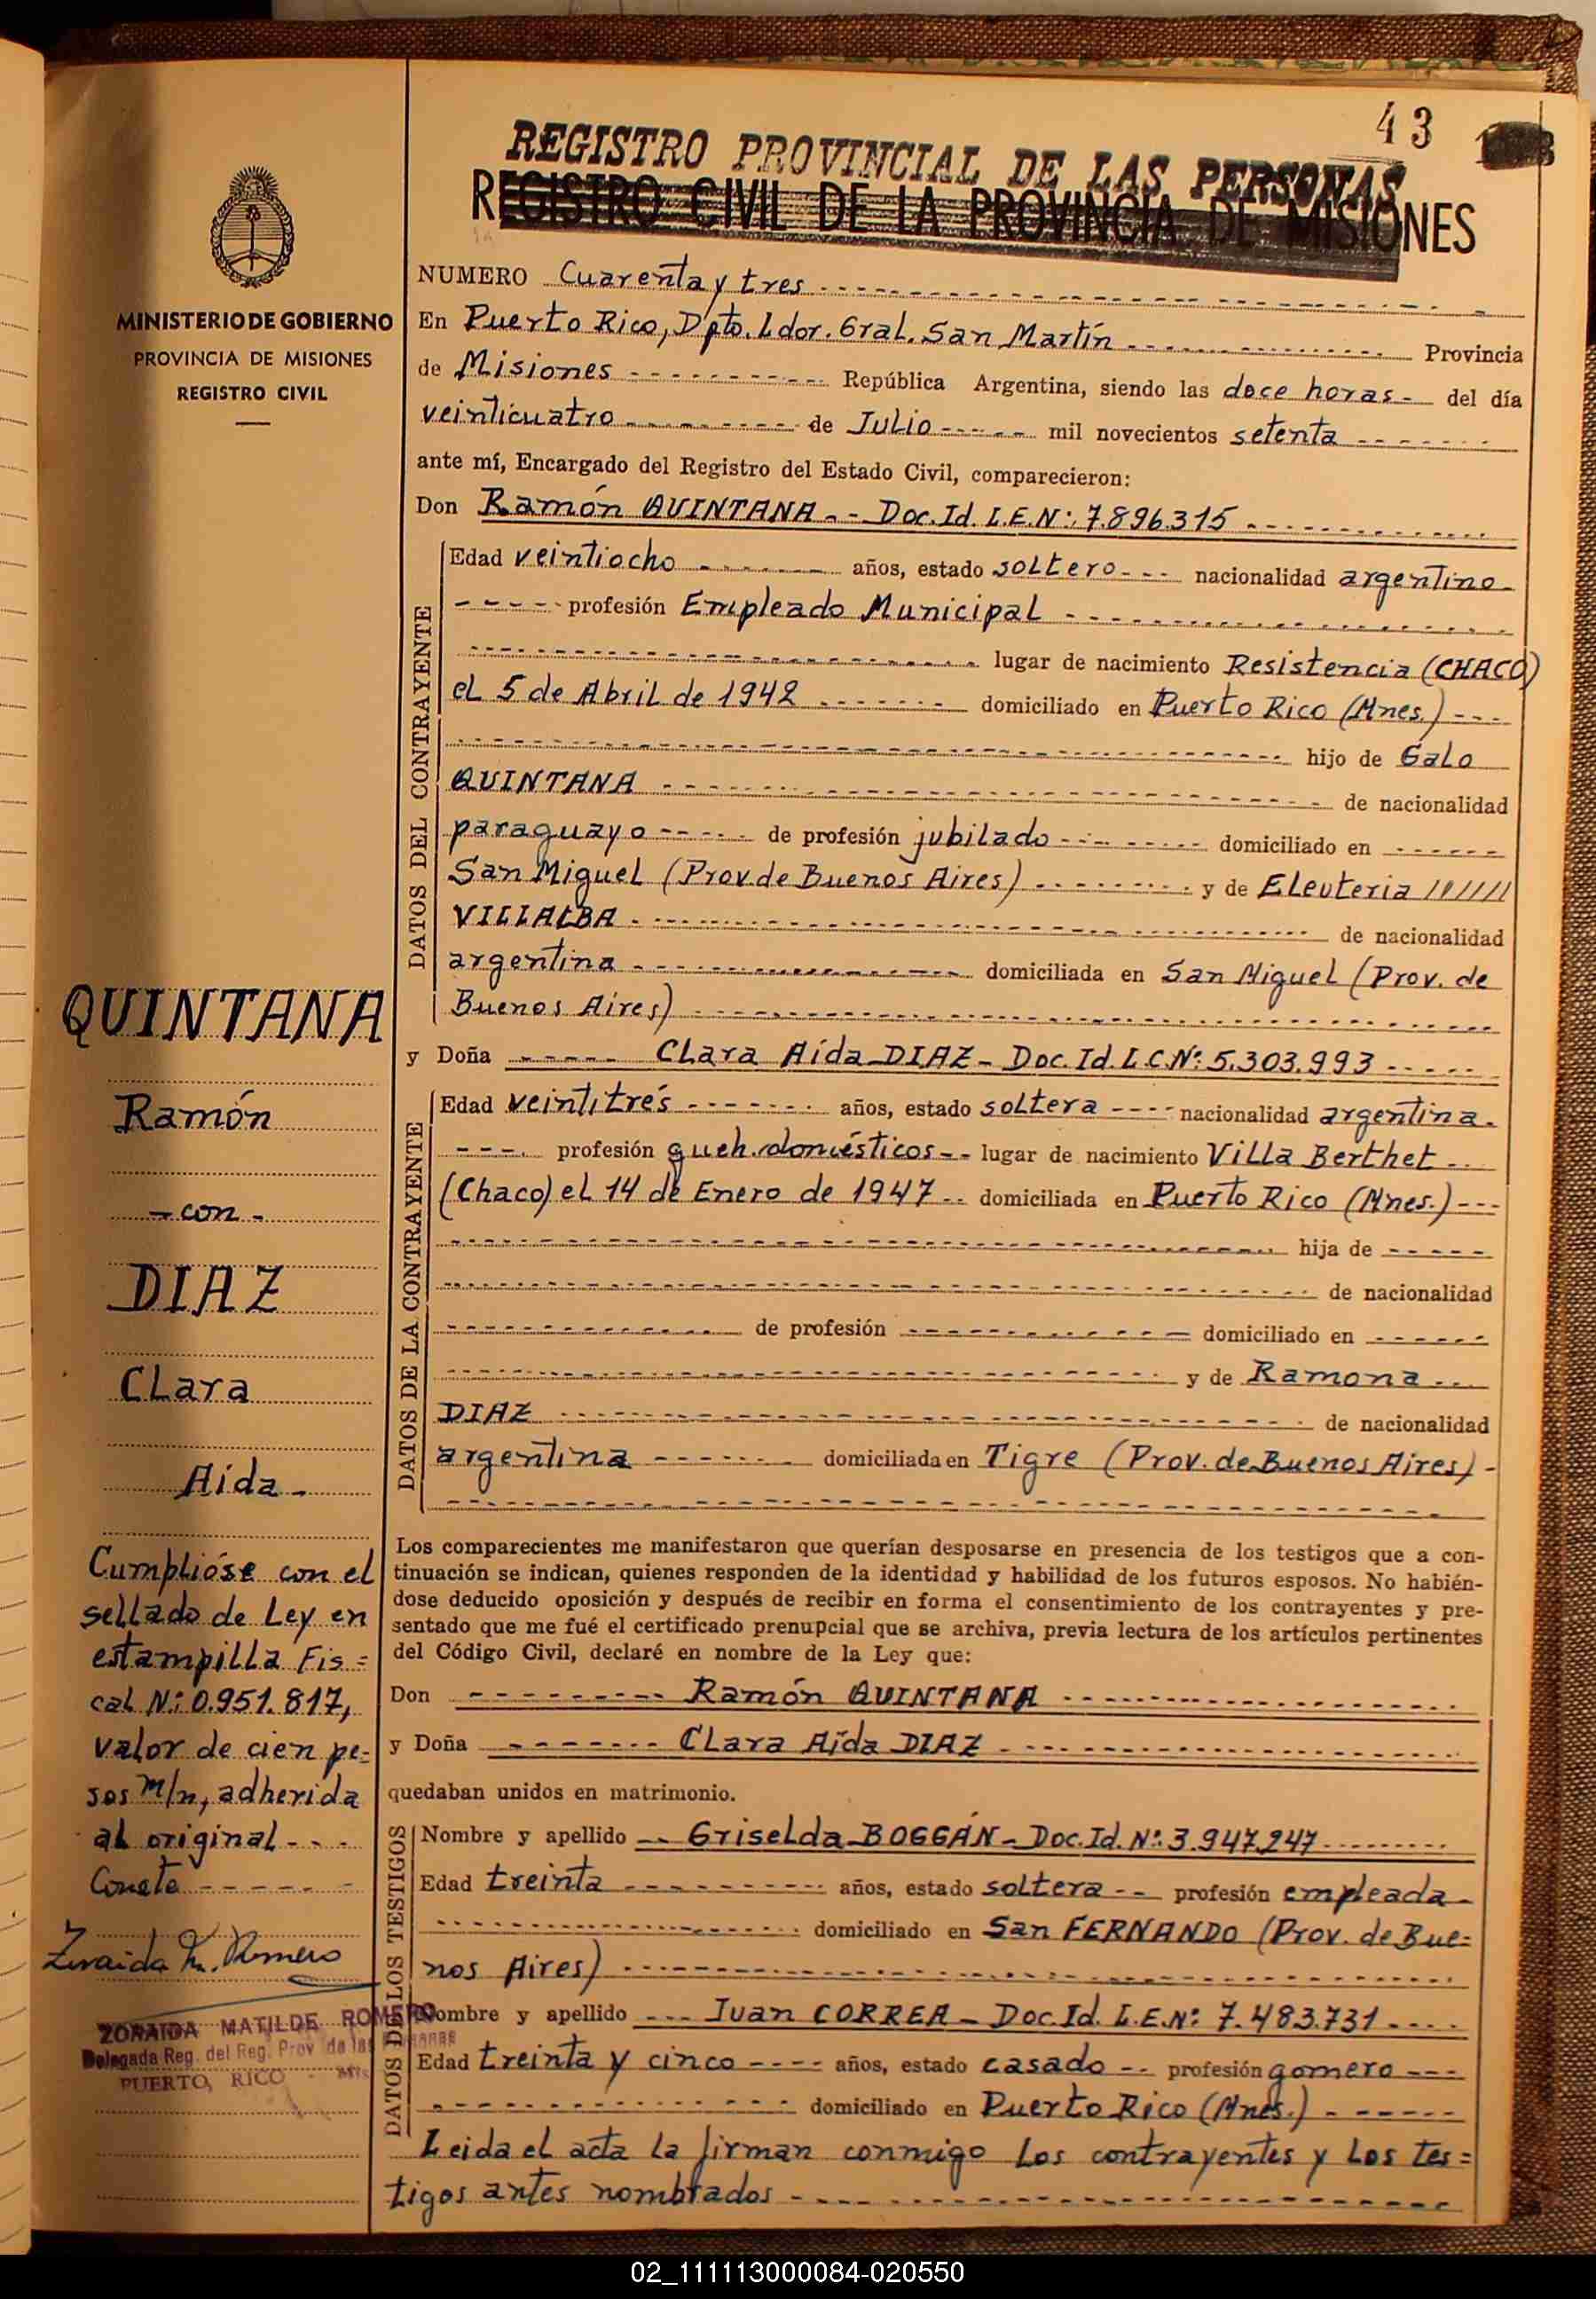 43
REGISTRO PROVINCIAL DE LAS PERSONAS
REGISTRO CIVIL DE LA PROVINCIA DE MISIONES
MINISTERIO DE GOBIERNO
PROVINCIA DE MISIONES
REGISTRO CIVIL
NUMERO Cuarenta y tres
En Puerto Rico, Dpto. Ldor. Gral. San Martín Provincia
de Misiones República Argentina, siendo las doce horas del día
veinticuatro de Julio mil novecientos setenta
ante mí, Encargado del Registro del Estado Civil, comparecieron:
Don Ramón QUINTANA - Doc. Id. L.E.Nº: 7.896.315
DATOS DEL CONTRAYENTE
Edad veintiocho años, estado soltero nacionalidad argentino
profesión Empleado Municipal
lugar de nacimiento Resistencia (CHACO)
el 5 de Abril de 1942 domiciliado en Puerto Rico (Mnes.)
hijo de Galo
QUINTANA de nacionalidad
paraguayo de profesión jubilado domiciliado en
San Miguel (Prov. de Buenos Aires) y de Eleuteria
VILLALBA de nacionalidad
argentina domiciliada en San Miguel (Prov. de
Buenos Aires)
y Doña Clara Aída DIAZ - Doc. Id. L.C.Nº: 5.303.993
DATOS DE LA CONTRAYENTE
Edad veintitrés años, estado soltera nacionalidad argentina
profesión queh. domésticos lugar de nacimiento Villa Berthet
(Chaco) el 14 de Enero de 1947 domiciliada en Puerto Rico (Mnes.)
hija de
de nacionalidad
de profesión domiciliado en
y de Ramona
DIAZ de nacionalidad
argentina domiciliada en Tigre (Prov. de Buenos Aires)
Los comparecientes me manifestaron que querían desposarse en presencia de los testigos que a con-
tinuación se indican, quienes responden de la identidad y habilidad de los futuros esposos. No habién-
dose deducido oposición y después de recibir en forma el consentimiento de los contrayentes y pre-
sentado que me fué el certificado prenupcial que se archiva, previa lectura de los artículos pertinentes
del Código Civil, declaré en nombre de la Ley que:
Don Ramón QUINTANA
y Doña Clara Aída DIAZ
quedaban unidos en matrimonio.
DATOS DE LOS TESTIGOS
Nombre y apellido Griselda BOGGÁN - Doc. Id. Nº: 3.947.247
Edad treinta años, estado soltera profesión empleada
domiciliado en San FERNANDO (Prov. de Bue=
nos Aires)
Nombre y apellido Juan CORREA - Doc. Id. L.E.Nº: 7.483.731
Edad treinta y cinco años, estado casado profesión gomero
domiciliado en Puerto Rico (Mnes.)
Leida el acta la firman conmigo los contrayentes y los tes=
tigos antes nombrados
QUINTANA
Ramón
- con -
DIAZ
Clara
Aída
Cumplióse con el
sellado de Ley en
estampilla Fis=
cal Nº: 0.951.817,
valor de cien pe=
sos m/n, adherida
al original
Conste
Zoraida M. Romero
ZORAIDA MATILDE ROMERO
Delegada Reg. del Reg. Prov de las Personas
PUERTO RICO
02_111113000084-020550